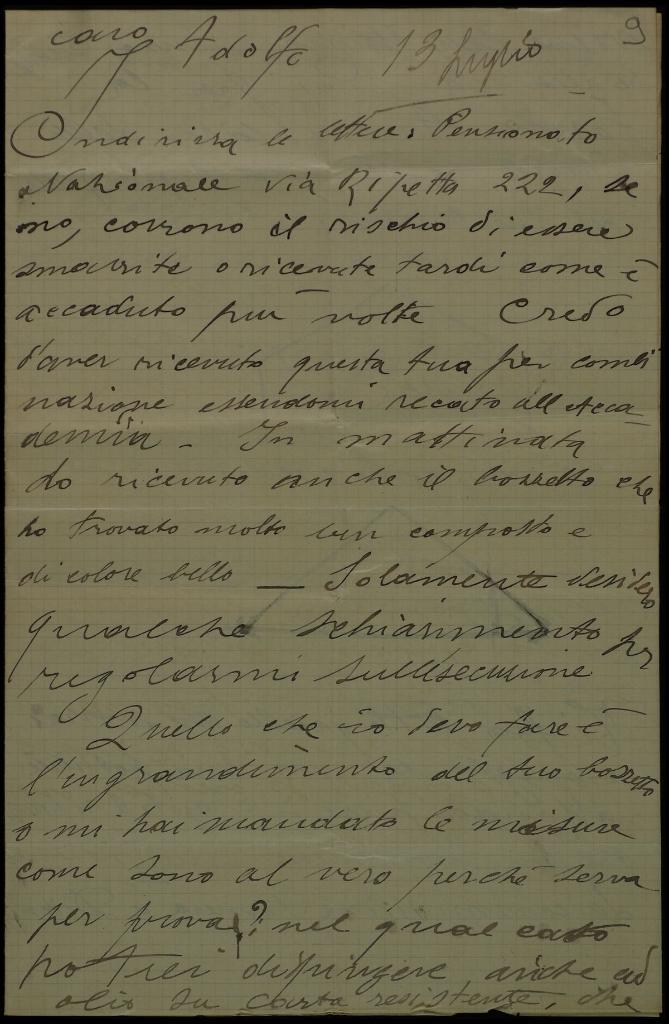 9
caro Adolfo 13 Luglio
Indirizza le lettere: Pensionato
Nazionale via Ripetta 222, se
no, corrono il rischio di essere
smarrite o ricevute tardi come è
accaduto più volte Credo
d'aver ricevuto questa tua per combi
nazione essendomi recato all Acca-
demia - In mattinata
ho ricevuto anche il bozzetto che
ho trovato molto ben composto e
di colore bello — Solamente desidero
qualche schiarimento per
regolarmi sull'esecuzione
Quello che io devo fare è
l'ingrandimento del tuo bozzetto
o mi hai mandato le misure
come sono al vero perchè serva
per prova? nel qual caso
potrei dipingere anche ad
olio su carta resistente, che